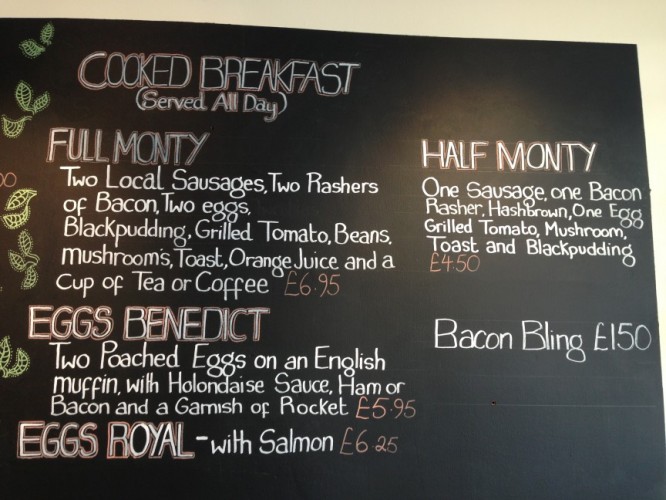 COOKED BREAKFAST
(Served All Day)
FULL MONTY
Two Local Sausages, Two Rashers
of Bacon, Two eggs,
Blackpudding, Grilled Tomato, Beans,
mushroom's, Toast, Orange Juice and a
Cup of Tea or Coffee £6.95
EGGS BENEDICT
Two Poached Eggs on an English
muffin, with Holondaise Sauce, Ham or
Bacon and a Garnish of Rocket £5.95
EGGS ROYAL - with Salmon £6.25
HALF MONTY
One Sausage, one Bacon
Rasher, Hashbrown, One Egg
Grilled Tomato, Mushroom,
Toast and Blackpudding
£4.50
Bacon Bling £1.50